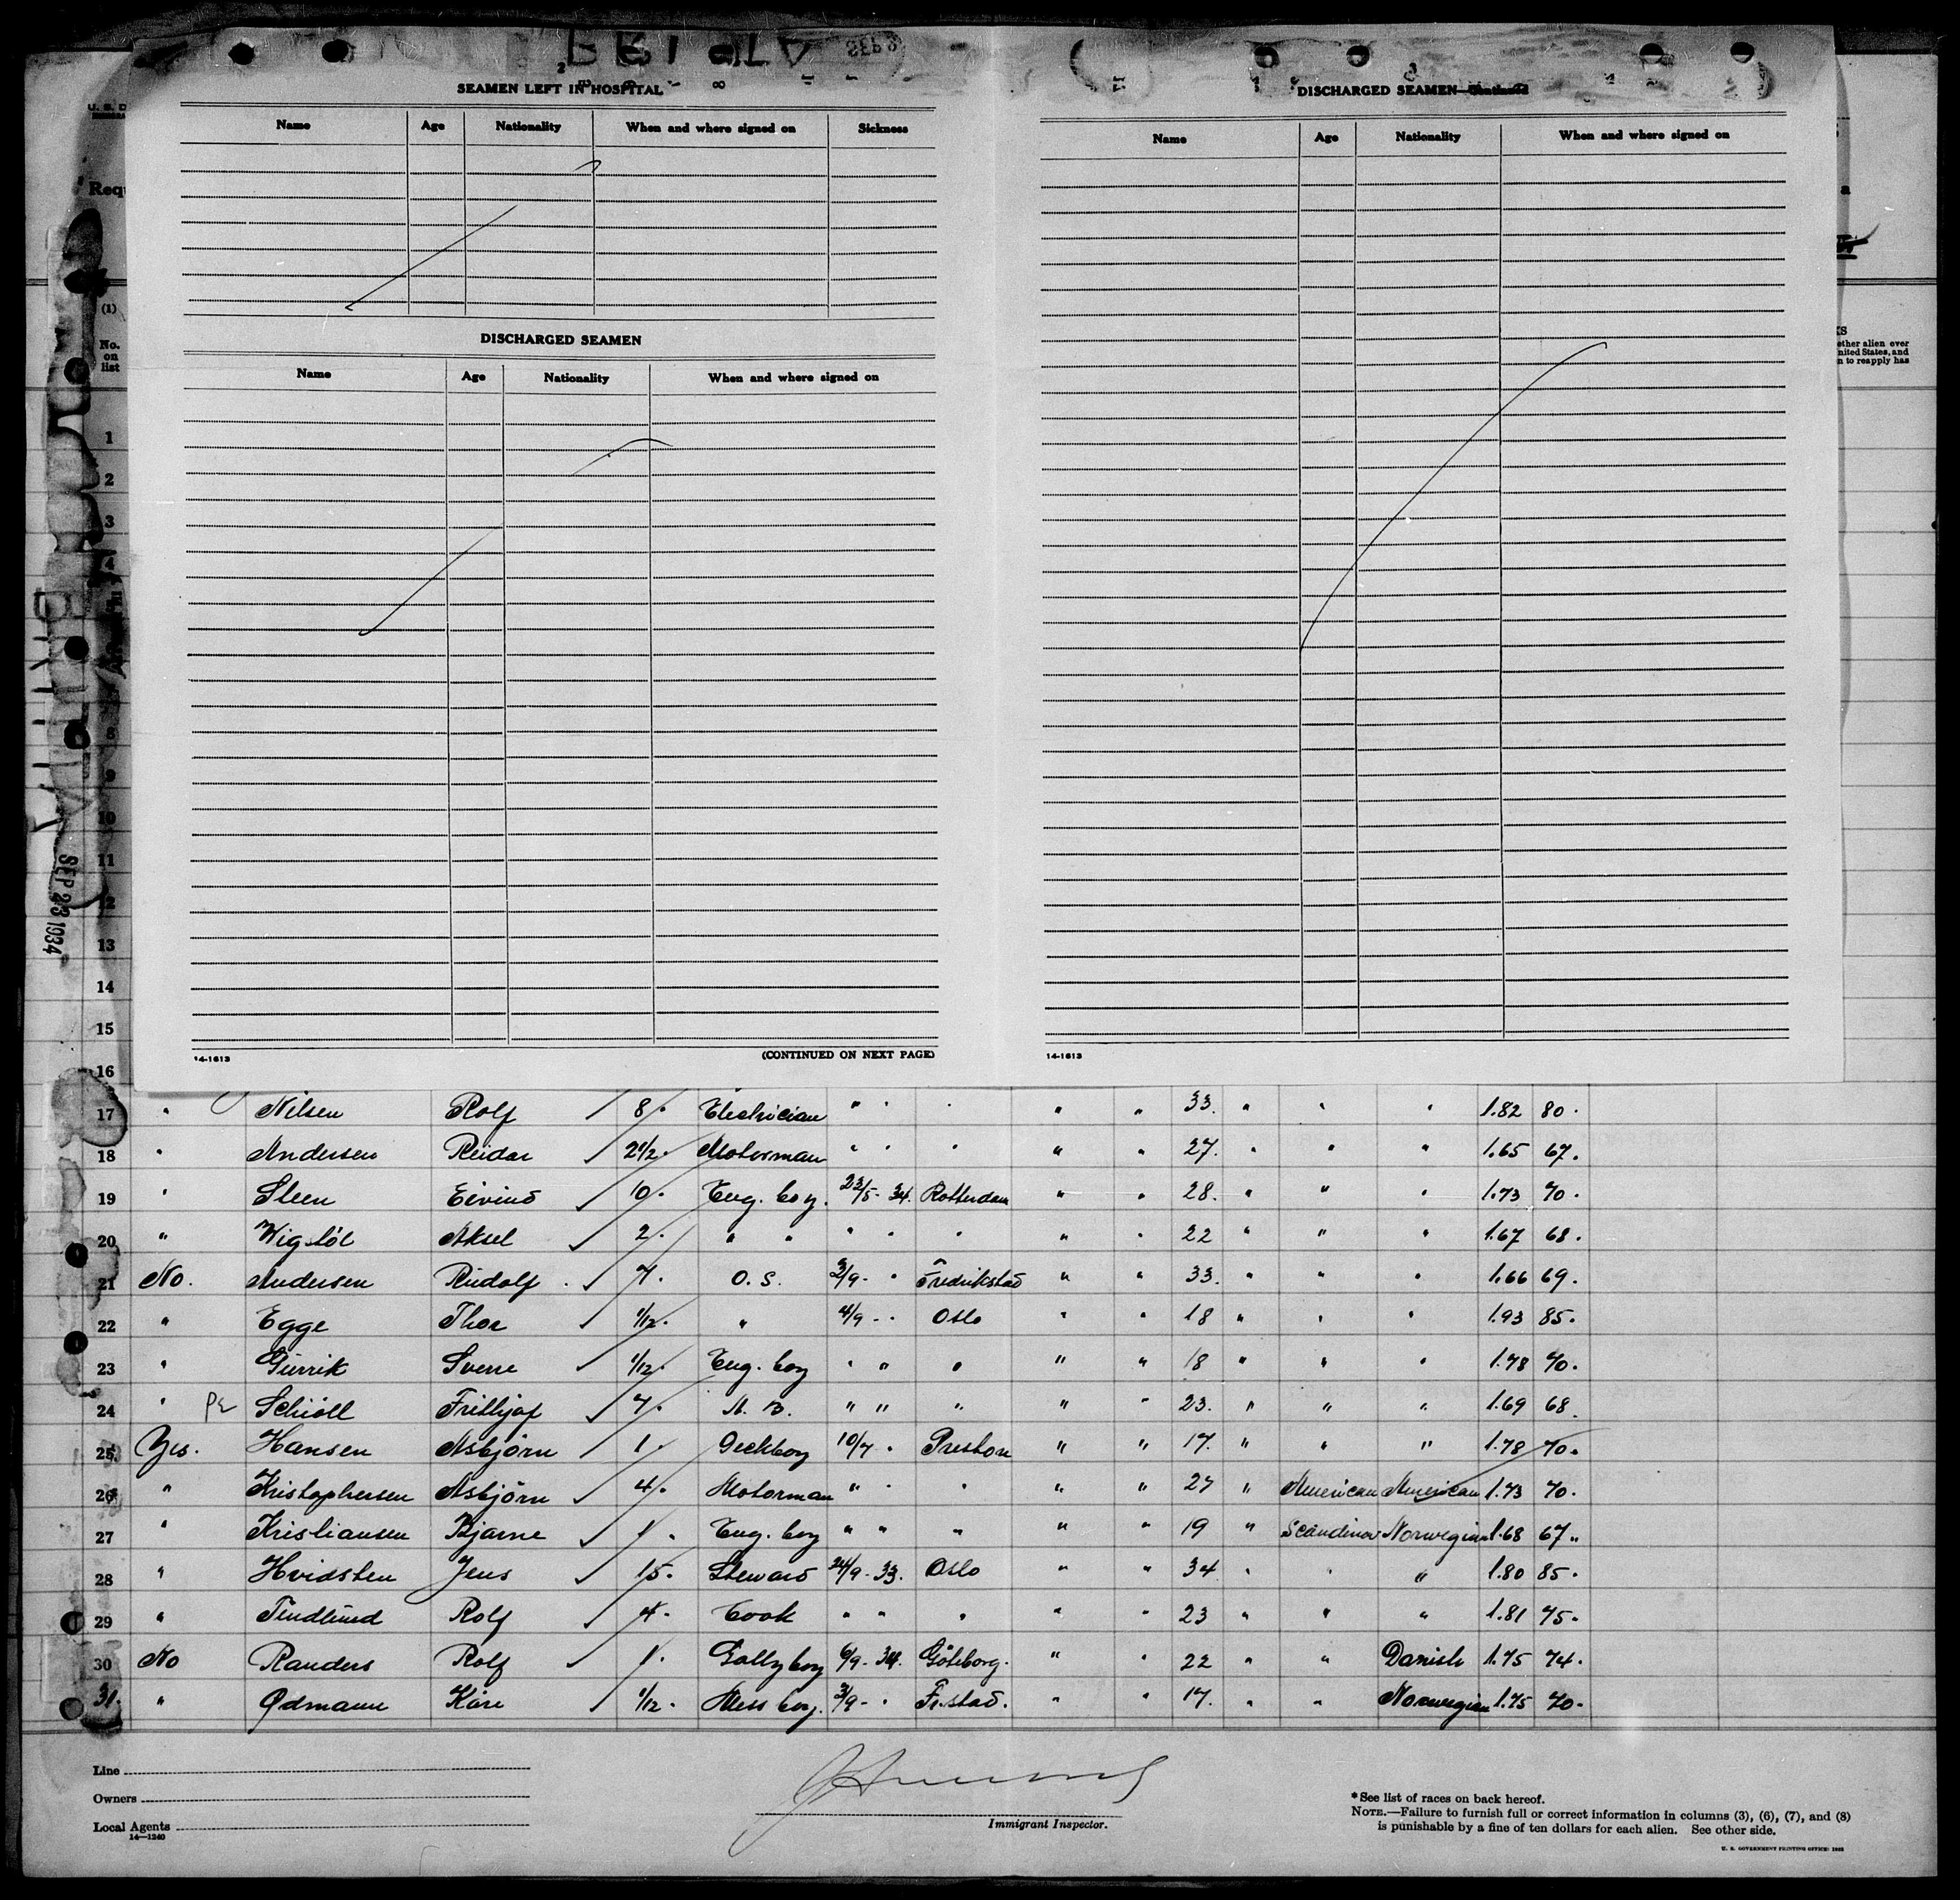 SEAMEN LEFT IN HOSPITAL
Name Age Nationality When and where signed on Sickness
DISCHARGED SEAMEN
Name Age Nationality When and where signed on
(CONTINUED ON NEXT PAGE)
14-1613
DISCHARGED SEAMEN—Continued
Name Age Nationality When and where signed on
14-1613
(1)
No.
on
list
ether alien ever
nited States, and
n to reapply has
SEP 23 1934
1
2
3
4
8
9
10
11
12
13
14
15
16
17 " Nilsen Rolf 8. Electrician " " " " " 33. " " " 1.82 80.
18 " Andersen Reidar 2 1/2. Motorman " " " " " 27. " " " 1.65 67.
19 " Steen Eivind 10. Eng. boy. 23/5- 34. Rotterdam " " 28. " " " 1.73 70.
20 " Wigsløl Aksel 2. " " " " " " " 22 " " " 1.67 68.
21 No. Andersen Rudolf. 7. O. S. 3/9- " Fredrikstad " " 33. " " " 1.66 69.
22 " Egge Thor 1/12. " 4/9- " Oslo " " 18 " " " 1.93 85.
23 " Gurrik Sverre 1/12. Eng. boy " " " " " 18 " " " 1.78 70.
24 " Schiøll Frithjof 7. A. B. " " " " " 23. " " " 1.69 68.
25 Yes. Hansen Asbjørn 1. Deckboy 10/7 " Preston " " 17. " " " 1.78 70.
26 " Kristophersen Asbjørn 4. Motorman " " " " " 27 " American American 1.73 70.
27 " Kristiansen Bjarne 1. Eng. boy " " " " " 19 " Scandinav Norwegian 1.68 67.
28 " Hvidsten Jens 15. Steward 24/9- 33. Oslo " " 34 " " " 1.80 85.
29 " Tindlund Rolf 4. Cook " " " " " 23 " " " 1.81 75.
30 No Randers Rolf 1. Gally boy 6/9- 34. Göteborg. " " 22 " " Danish 1.75 74.
31. " Ødmann Kåre 1/12. Mess boy. 3/9- " Fr.stad. " " 17. " " Norwegian 1.75 70.
Line
Owners
Local Agents
14—1240
Immigrant Inspector.
*See list of races on back hereof.
NOTE.—Failure to furnish full or correct information in columns (3), (6), (7), and (8)
is punishable by a fine of ten dollars for each alien. See other side.
U. S. GOVERNMENT PRINTING OFFICE: 1932